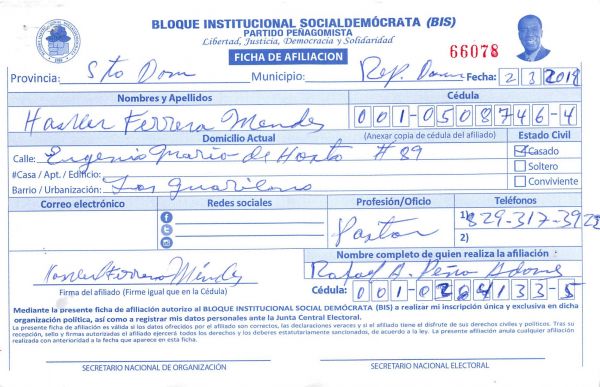 BLOQUE INSTITUCIONAL SOCIALDEMÓCRATA (BIS)
PARTIDO PEÑAGOMISTA
Libertad, Justicia, Democracia y Solidaridad
FICHA DE AFILIACION
66078
Provincia: Sto Dom Municipio: Rep. Dom Fecha: 2 3 2018
Nombres y Apellidos
Cédula
Ferrera Mendez
001-0508746-4
Domicilio Actual
(Anexar copia de cédula del afiliado)
Estado Civil
Calle: Eugenio Maria de Hosto # 89
Casado
#Casa / Apt. / Edificio:
Soltero
Barrio / Urbanización: Los
Conviviente
Correo electrónico
Redes sociales
Profesión/Oficio
Teléfonos
Pastor
1) 829-317-3928
2)
Nombre completo de quien realiza la afiliación
Ferrera Méndez
Rafael A. Peña
Firma del afiliado (Firme igual que en la Cédula)
Cédula: 001-0264133-5
Mediante la presente ficha de afiliación autorizo al BLOQUE INSTITUCIONAL SOCIAL DEMÓCRATA (BIS) a realizar mi inscripción única y exclusiva en dicha
organización política, así como a registrar mis datos personales ante la Junta Central Electoral.
La presente ficha de afiliación es válida si los datos ofrecidos por el afiliado son correctos, las declaraciones veraces y si el afiliado tiene el disfrute de sus derechos civiles y políticos. Tras su
recepción, sello y firma autorizadas el afiliado ejercerá todos los derechos y los deberes estatutariamente sancionados, de acuerdo a la ley. La presente afiliación anula cualquier afiliación
realizada con anterioridad a la fecha que aparece en esta ficha.
SECRETARIO NACIONAL DE ORGANIZACIÓN
SECRETARIO NACIONAL ELECTORAL